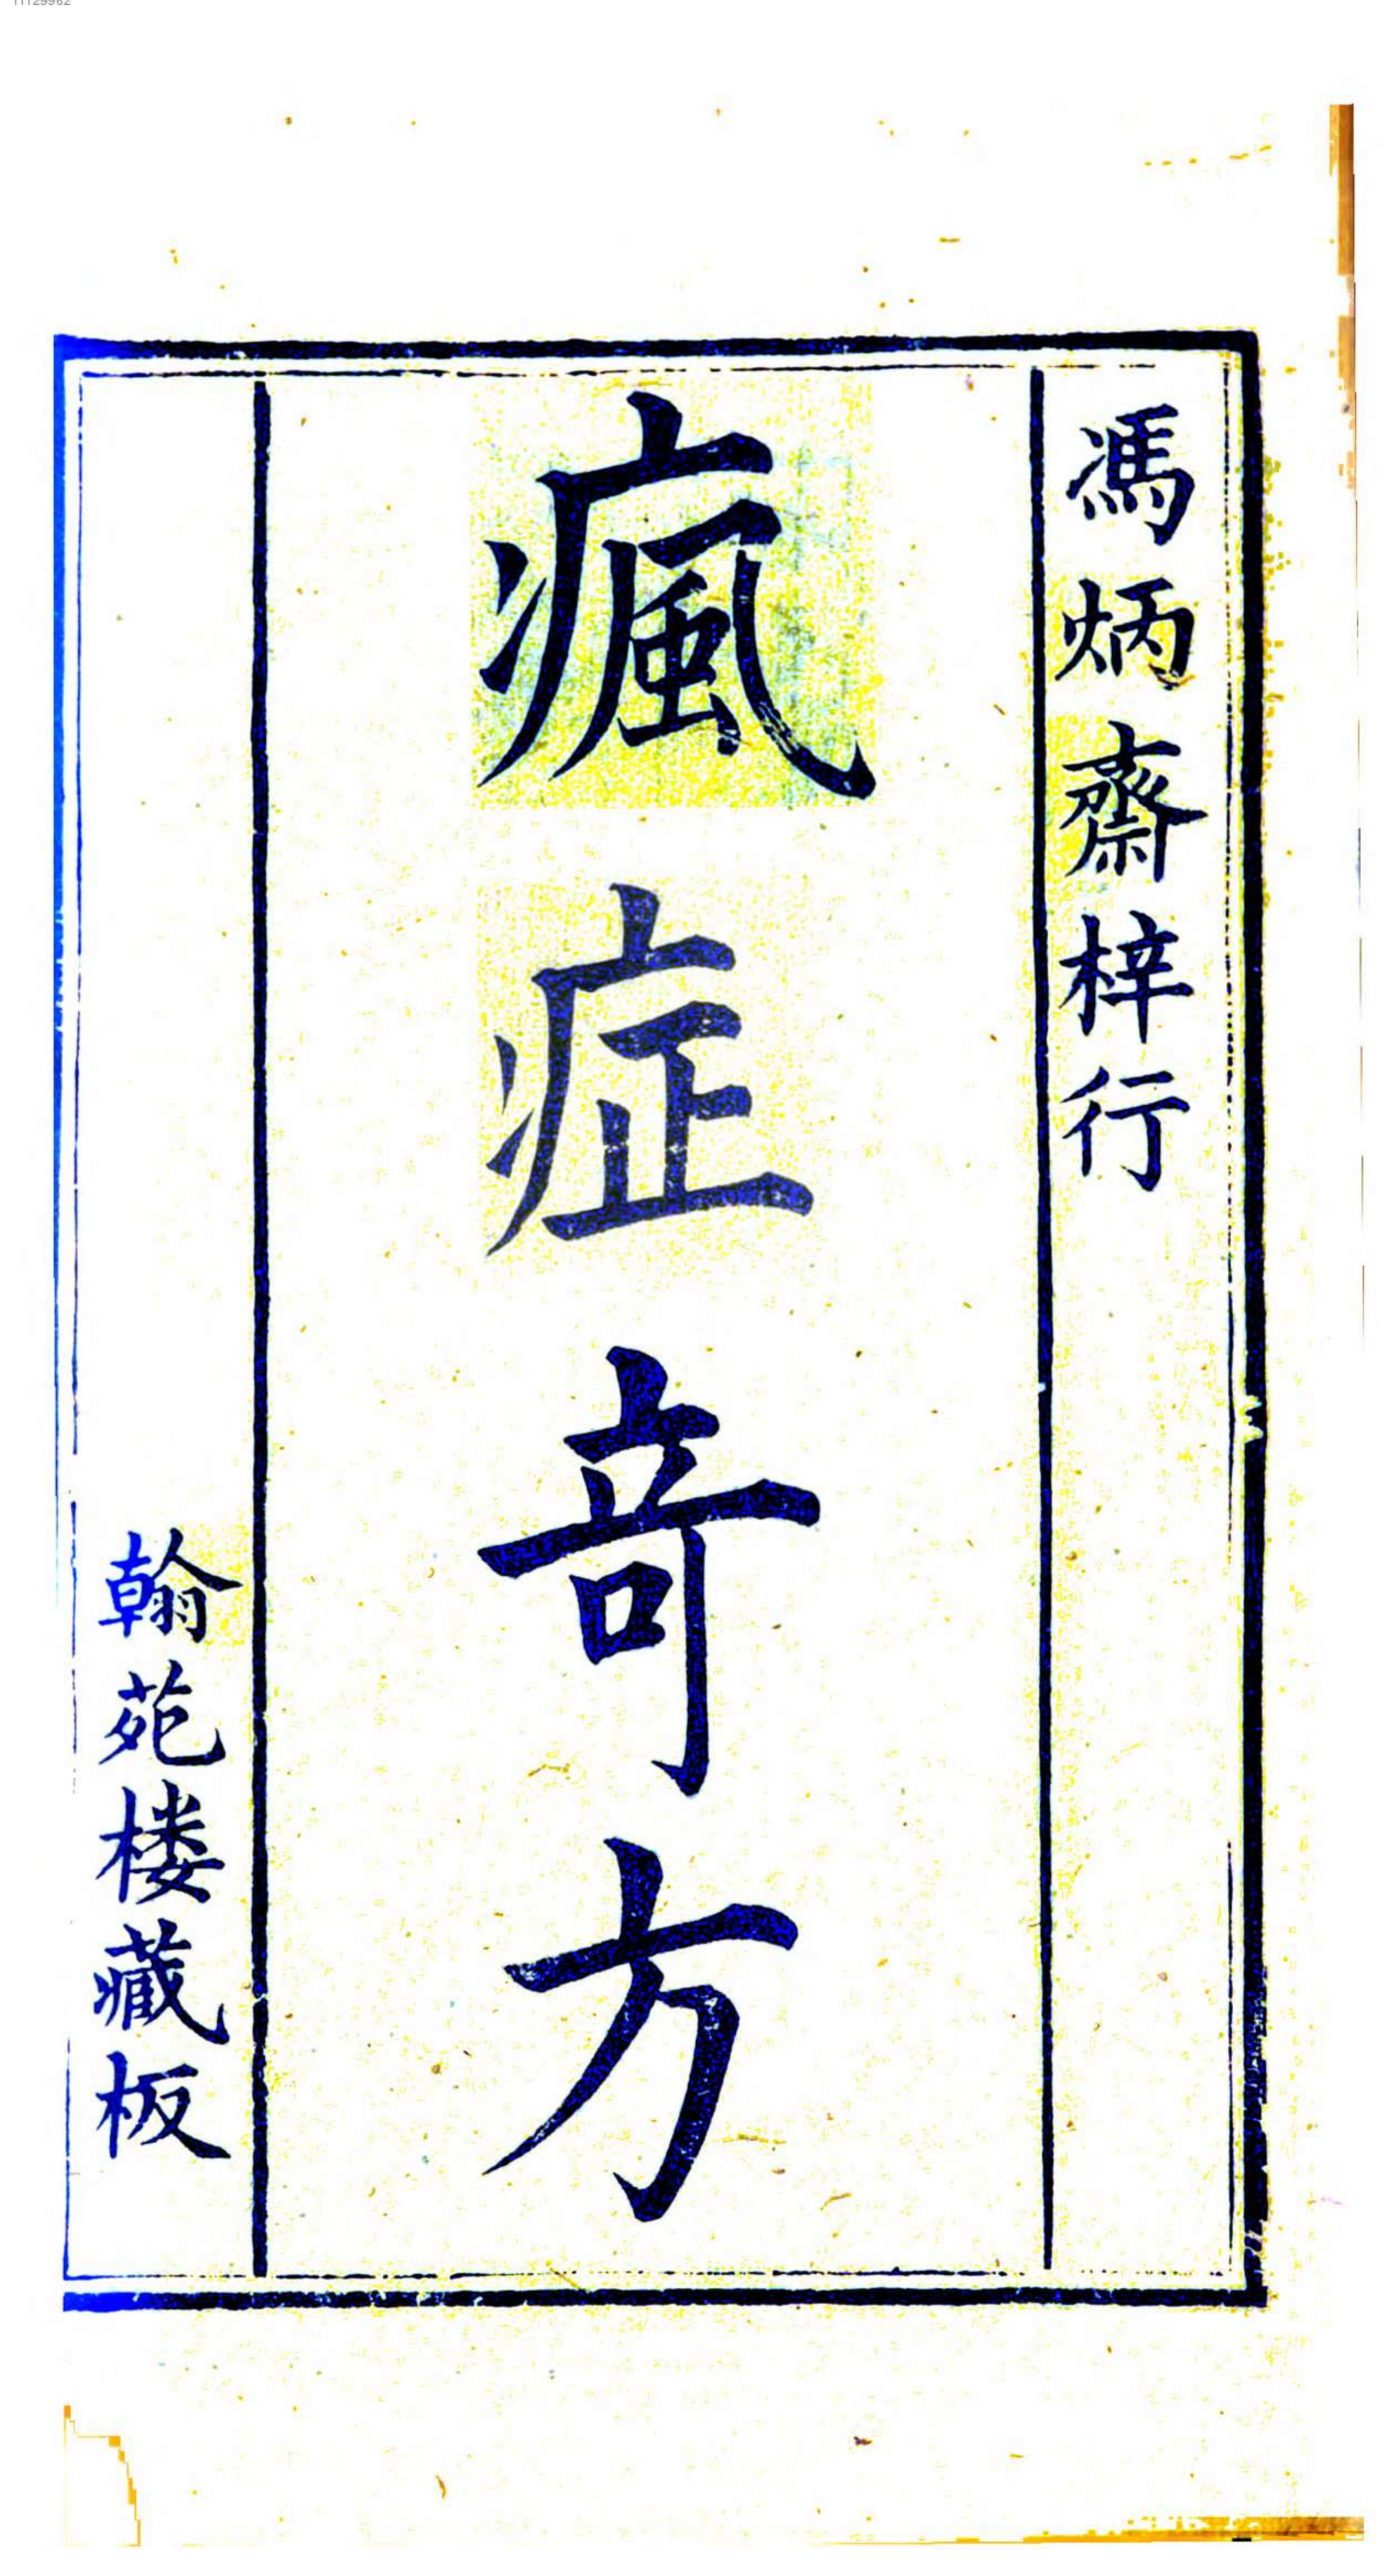 馮炳齋梓行
瘋症竒方
翰苑楼藏板